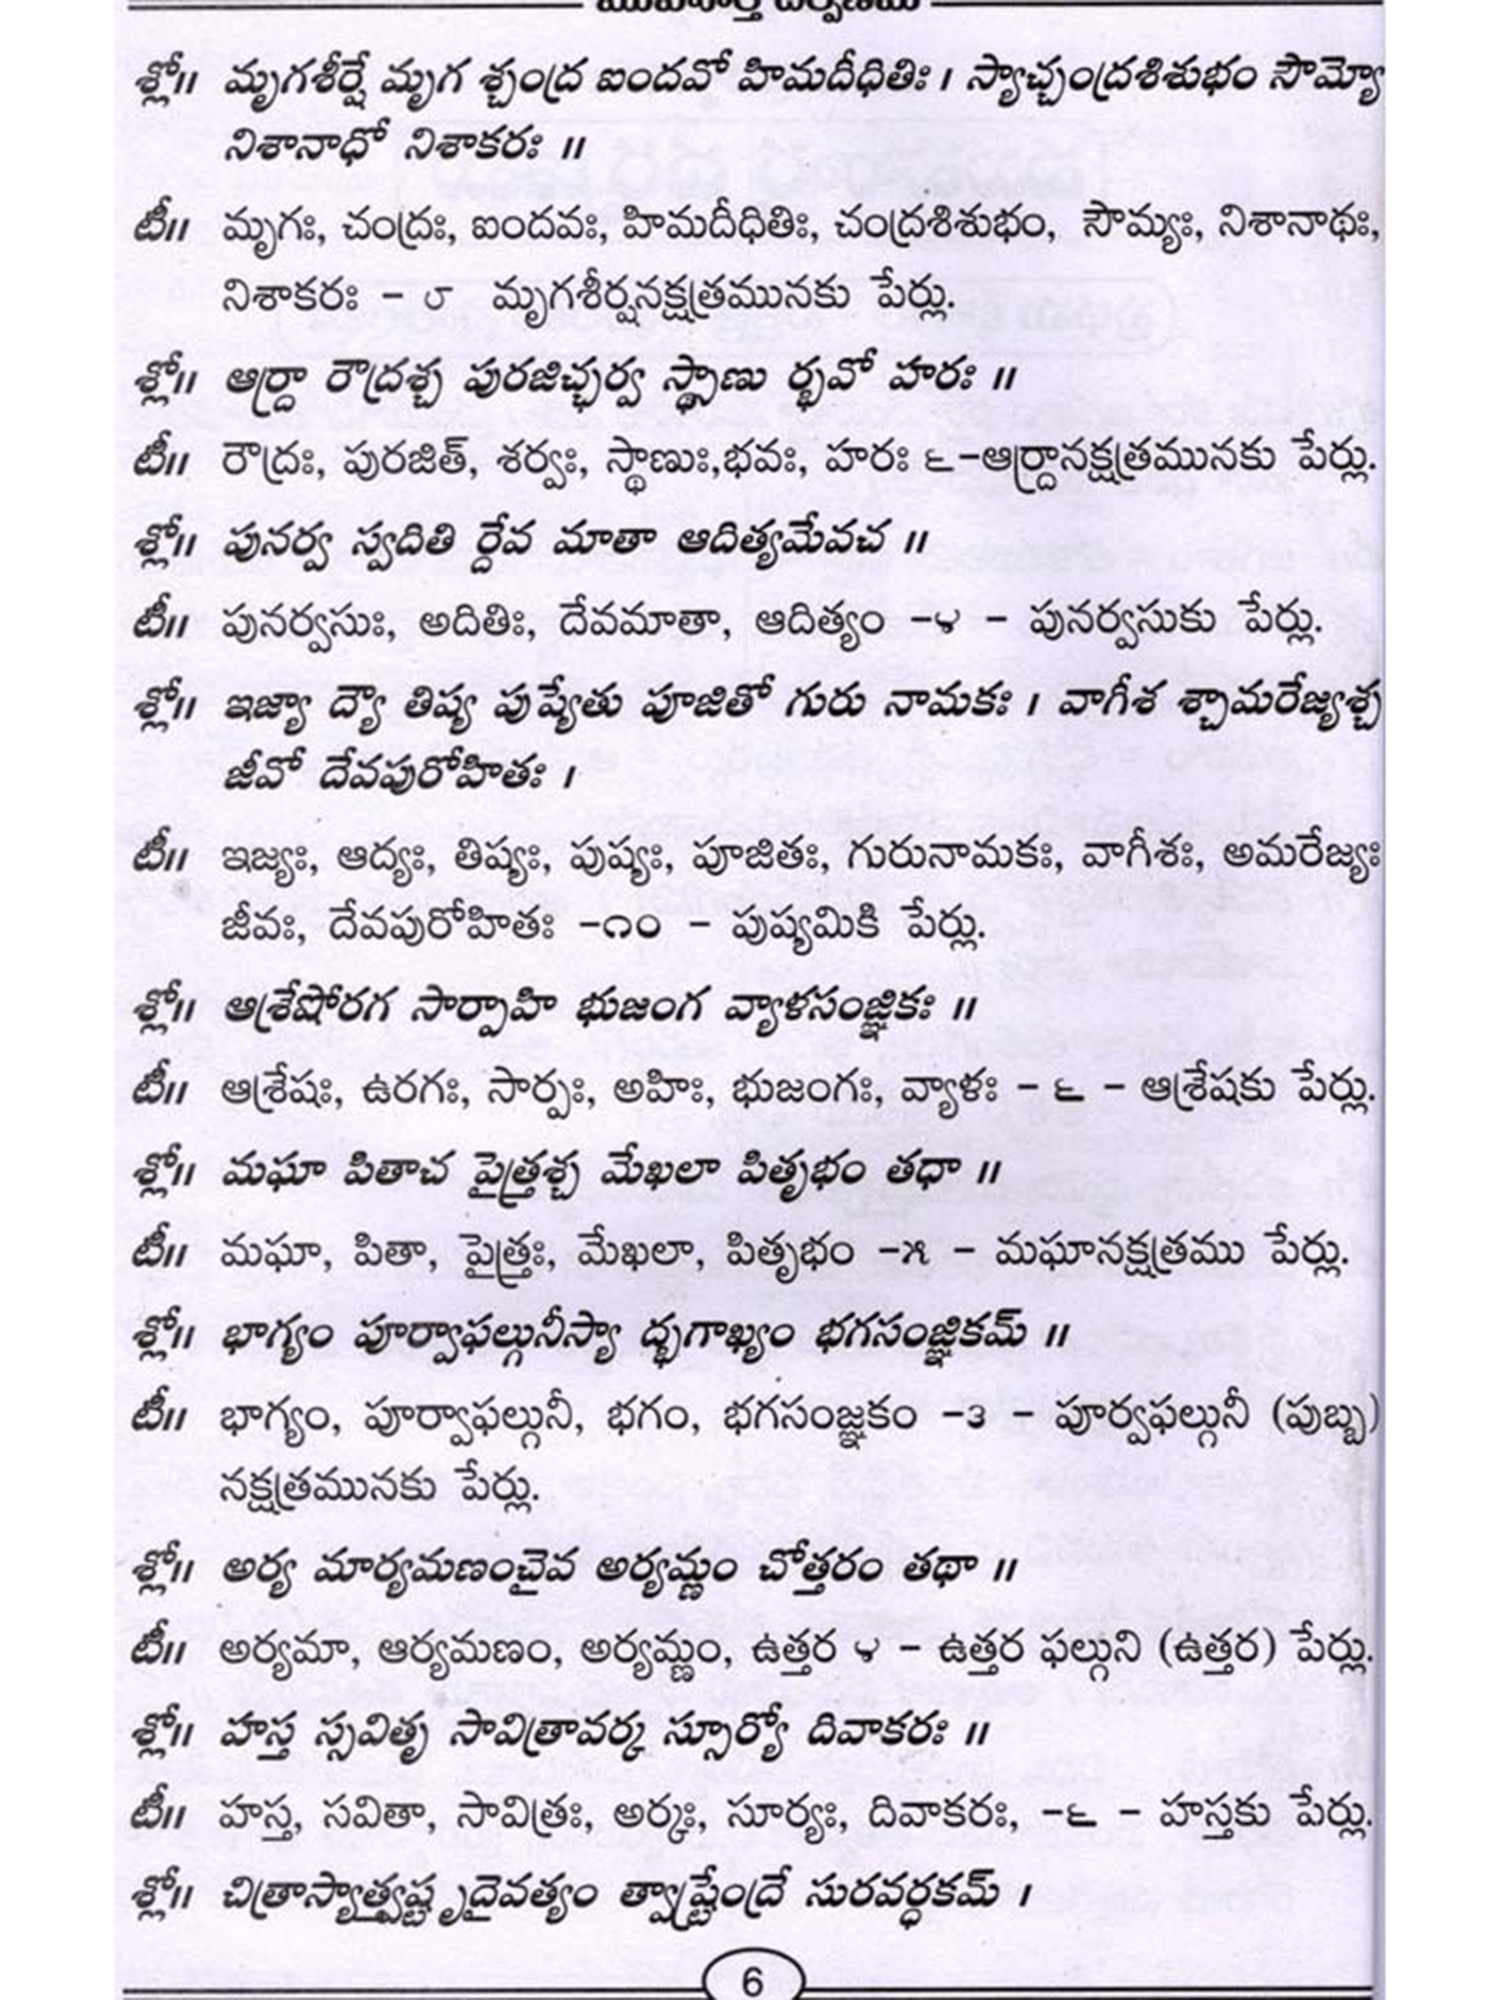 శ్లో॥ మృగశీర్షే మృగ శ్చంద్ర ఐందవో హిమదీధితిః । స్యాచ్చంద్రశిశుభం సౌమ్యో
నిశానాధో నిశాకరః ॥
టీ॥ మృగః, చంద్రః, ఐందవః, హిమదీధితిః, చంద్రశిశుభం, సౌమ్యః, నిశానాథః,
నిశాకరః - ౮ మృగశీర్షనక్షత్రమునకు పేర్లు.
శ్లో॥ ఆర్ద్రా రౌద్రశ్చ పురజిచ్ఛర్వ స్థ్సాణు ర్భవో హరః ॥
టీ॥ రౌద్రః, పురజిత్, శర్వః, స్థాణుః,భవః, హరః ౬-ఆర్ద్రానక్షత్రమునకు పేర్లు.
శ్లో॥ పునర్వ స్వదితి ర్దేవ మాతా ఆదిత్యమేవచ ॥
టీ॥ పునర్వసుః, అదితిః, దేవమాతా, ఆదిత్యం -౪ - పునర్వసుకు పేర్లు.
శ్లో॥ ఇజ్యా ద్యౌ తిష్య పుష్యేతు పూజితో గురు నామకః । వాగీశ శ్చామరేజ్యశ్చ
జీవో దేవపురోహితః ।
టీ॥ ఇజ్యః, ఆద్యః, తిష్యః, పుష్యః, పూజితః, గురునామకః, వాగీశః, అమరేజ్యః
జీవః, దేవపురోహితః -౧౦ - పుష్యమికి పేర్లు.
శ్లో॥ ఆశ్రేషోరగ సార్పాహి భుజంగ వ్యాళసంజ్ఞికః ॥
టీ॥ ఆశ్రేషః, ఉరగః, సార్పః, అహిః, భుజంగః, వ్యాళః - ౬ - ఆశ్రేషకు పేర్లు.
శ్లో॥ మఘా పితాచ పైత్ర్రశ్చ మేఖలా పితృభం తధా ॥
టీ॥ మఘా, పితా, పైత్ర్రః, మేఖలా, పితృభం -౫ - మఘానక్షత్రము పేర్లు.
శ్లో॥ భాగ్యం పూర్వాఫల్గునీస్యా ద్భగాఖ్యం భగసంజ్ఞికమ్ ॥
టీ॥ భాగ్యం, పూర్వాఫల్గునీ, భగం, భగసంజ్ఞకం -౩ - పూర్వఫల్గునీ (పుబ్బ)
నక్షత్రమునకు పేర్లు.
శ్లో॥ అర్య మార్యమణంచైవ అర్యమ్ణం చోత్తరం తథా ॥
టీ॥ అర్యమా, ఆర్యమణం, అర్యమ్ణం, ఉత్తర ౪ - ఉత్తర ఫల్గుని (ఉత్తర) పేర్లు.
శ్లో॥ హస్త స్సవితృ సావిత్రావర్క స్సూర్యో దివాకరః ॥
టీ॥ హస్త, సవితా, సావిత్రః, అర్కః, సూర్యః, దివాకరః, -౬ - హస్తకు పేర్లు.
శ్లో॥ చిత్రాస్యాత్త్వష్టృదైవత్యం త్వాష్ట్రేంద్రే సురవర్ధకమ్ ।
6